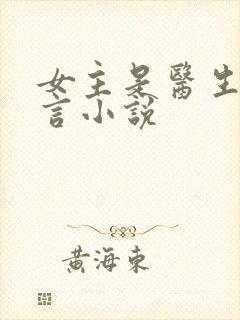 女主是醫生
言小說
黃海東